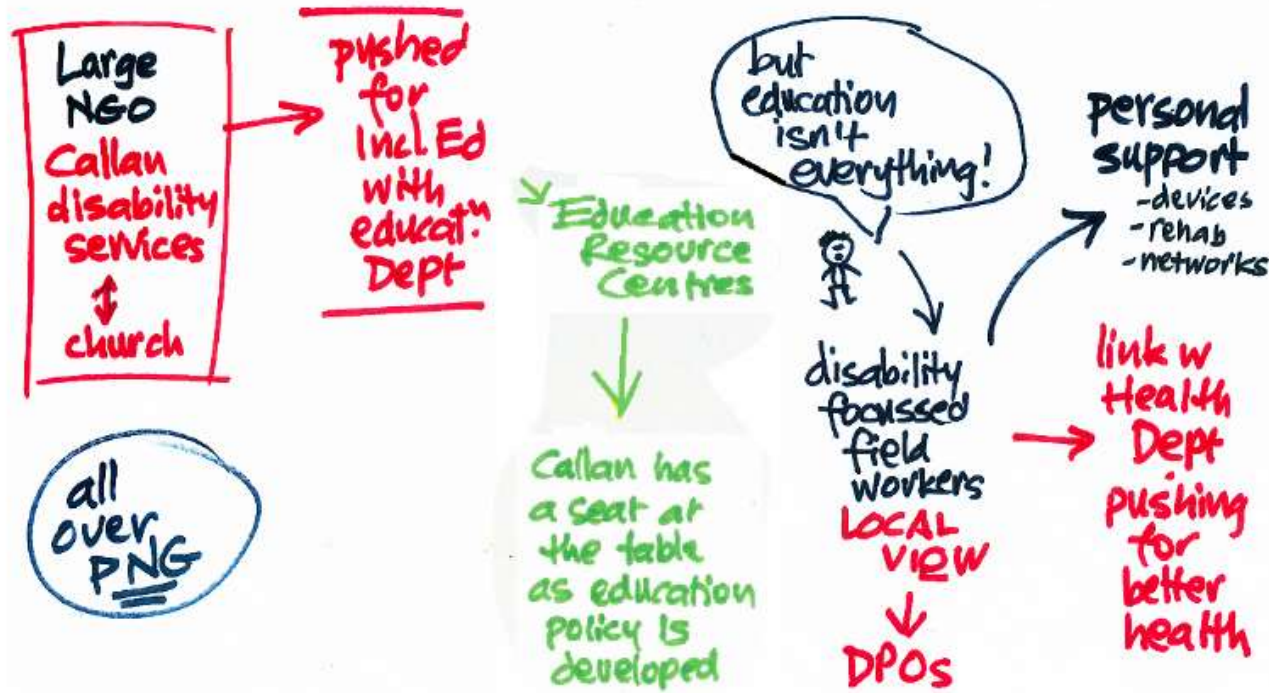 Large
NGO
Callan
disability
services
church
all
over
PNG
pushed
for
Incl. Ed
with
educatn.
Dept
Education
Resource
Centres
Callan has
a seat at
the table
as education
policy is
developed
but
education
isn't
everything!
disability
focussed
field
workers
LOCAL
VIEW
DPOs
personal
support
-devices
-rehab
-networks
link w
Health
Dept
pushing
for
better
health